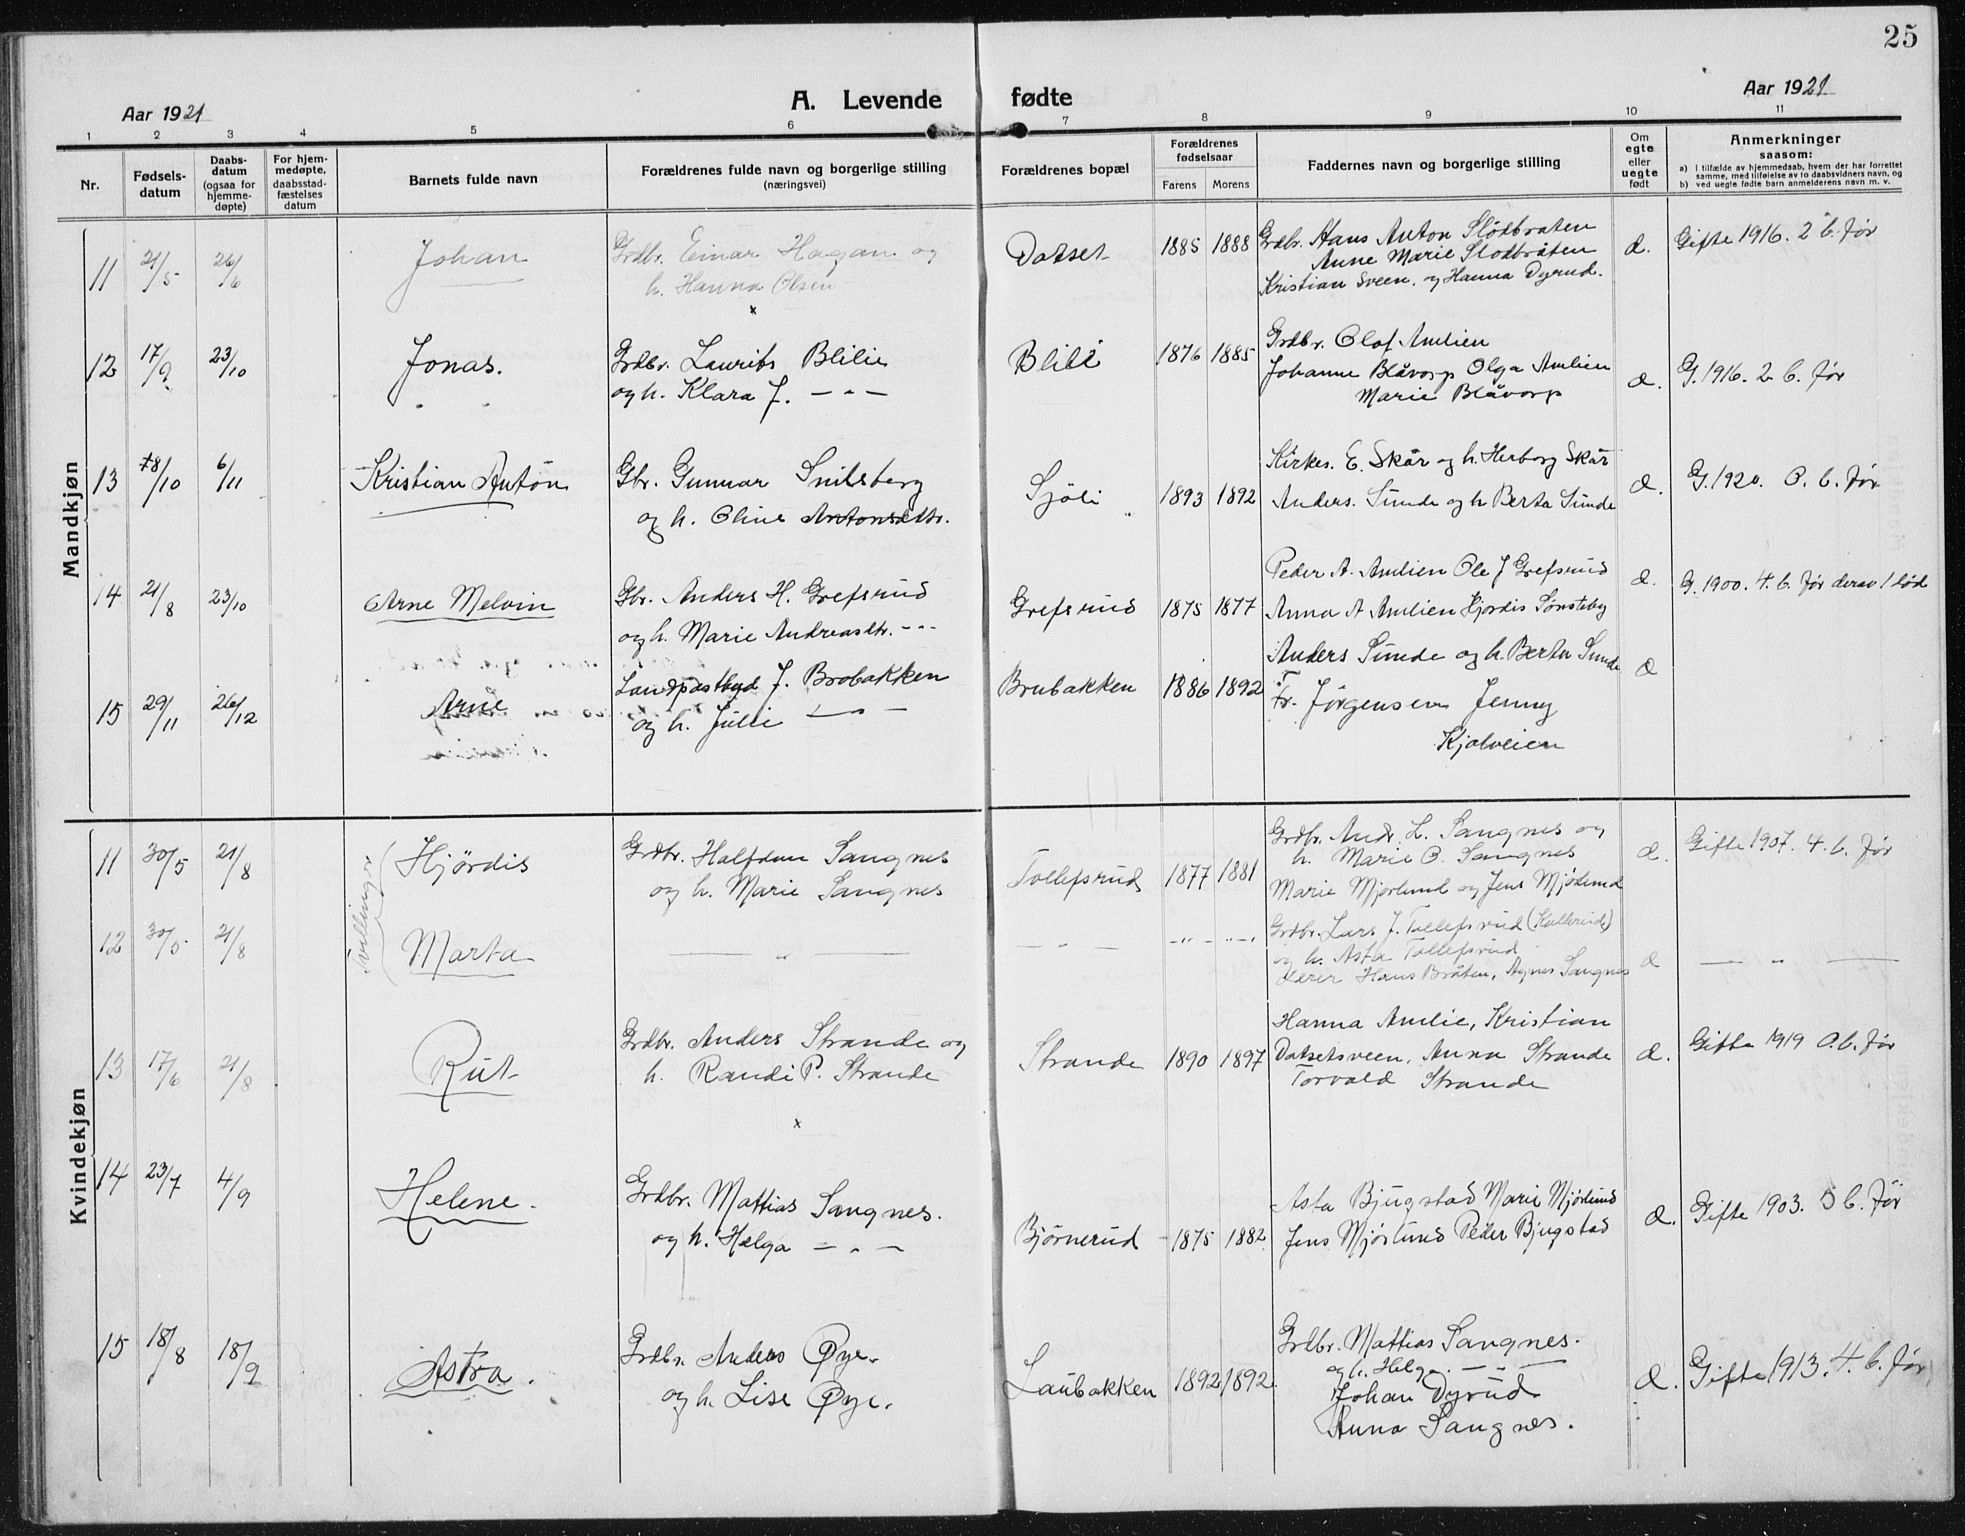 25
Aar 1921
A. Levende fødte
Aar 1921
1 2 3 4 5 6 7 8 9 10 11
Nr.
Fødsels-
datum
Daabs-
datum
(ogsaa for
hjemme-
døpte)
For hjem-
medøpte,
daabsstad-
fæstelses
datum
Barnets fulde navn
Forældrenes fulde navn og borgerlige stilling
(næringsvei)
Forældrenes bopæl
Forældrenes
fødselsaar
Farens Morens
Faddernes navn og borgerlige stilling
Om
egte
eller
uegte
født
Anmerkninger
saasom:
a) I tilfælde av hjemmedaab, hvem der har forrettet
samme, med tilføielse av to daabsvidners navn, og
b) ved uegte fødte barn anmelderens navn m. v.
Mandkjøn
11 21/5 26/6 Johan
Grdbr. Einar Hagan og
h. Hanna Olsen
Datset 1885 1888
Grdbr. Hans Anton Slödbråten
Anne Marie Slodbråten
Kristian Sveen. og Hanna Dyrud.
æ. Gifte 1916. 2 b. før
x
12 17/9 23/10 Jonas.
Grdbr. Laurits Blilie
og h. Klara J. — " —
Blili 1876 1885
Grdbr. Olaf Amlien
Johanne Blåvarp Olga Amlien
Marie Blåvarp
æ. G. 1916. 2 b. før
13 18/10 6/11 Kristian Antön
Gbr. Gunnar Snilsberg
og h. Oline Antonsdtr.
Sjöli 1893 1892
Kirkes. E. Skår og h. Herborg Skår
Anders. Sunde og h Berta Sunde
æ. G. 1920. 0. b. før
14 21/8 23/10 Arne Melvin
Gbr. Anders H. Grefsrud
og h. Marie Andreasdtr. - " -
Grefsrud 1875 1877
Peder A. Amlien Ole J Grefsrud
Anna A Amlien Hjordis Sønsteby
æ. G. 1900. 4. b. før derav 1 død
15 29/11 26/12 Arne
Landpostbud J. Brobakken
og h. Julie — " —
Brubakken 1886 1892
Anders Sunde og h. Berta Sunde
Fr. Jørgensen Jenny
Kjølveien
æ
Kvindekjøn
Tvillinger
11 30/5 21/8 Hjørdis
Grdbr. Halfdan Sangnes
og h. Marie Sangnes
Tollefsrud 1877 1881
Grdbr. Andr. L. Sangnes og
h. Marie O. Sangnes
Marie Mjørlund og Jens Mjørlund
æ. Gifte 1907. 4. b. før
12 30/5 21/8 Marta
— " —
— " — - " - - " -
Grdbr. Lars J. Tollefsrud
og h. Asta Tollefsrud
Lærer Hans Bråten, Agnes Sangnes
æ — " —
13 17/6 21/8 Rut
Grdbr. Anders Strande og
h. Randi P. Strande
Strande 1890 1897
Hanna Amlie, Kristian
Datsetsveen, Anna Strande
Torvald Strande
æ. Gifte 1919 0. b. før
x
14 23/7 4/9 Helene.
Grdbr. Mattias Sangnes.
og h. Helga — " —
Bjørnerud 1875 1882
Asta Bjugstad Marie Mjørlund
Jens Mjørlund Peder Bjugstad
æ. Gifte 1903. 5 b. før
15 18/8 18/9 Astra.
Grdbr. Anders Øye.
og h. Lise Øye.
Laubakken 1892 1892.
Grdbr. Mattias Sangnes.
og h. Helga. — " —
Johan Dyrud
Anna Sangnes.
æ. Gifte 1913. 4. b. før